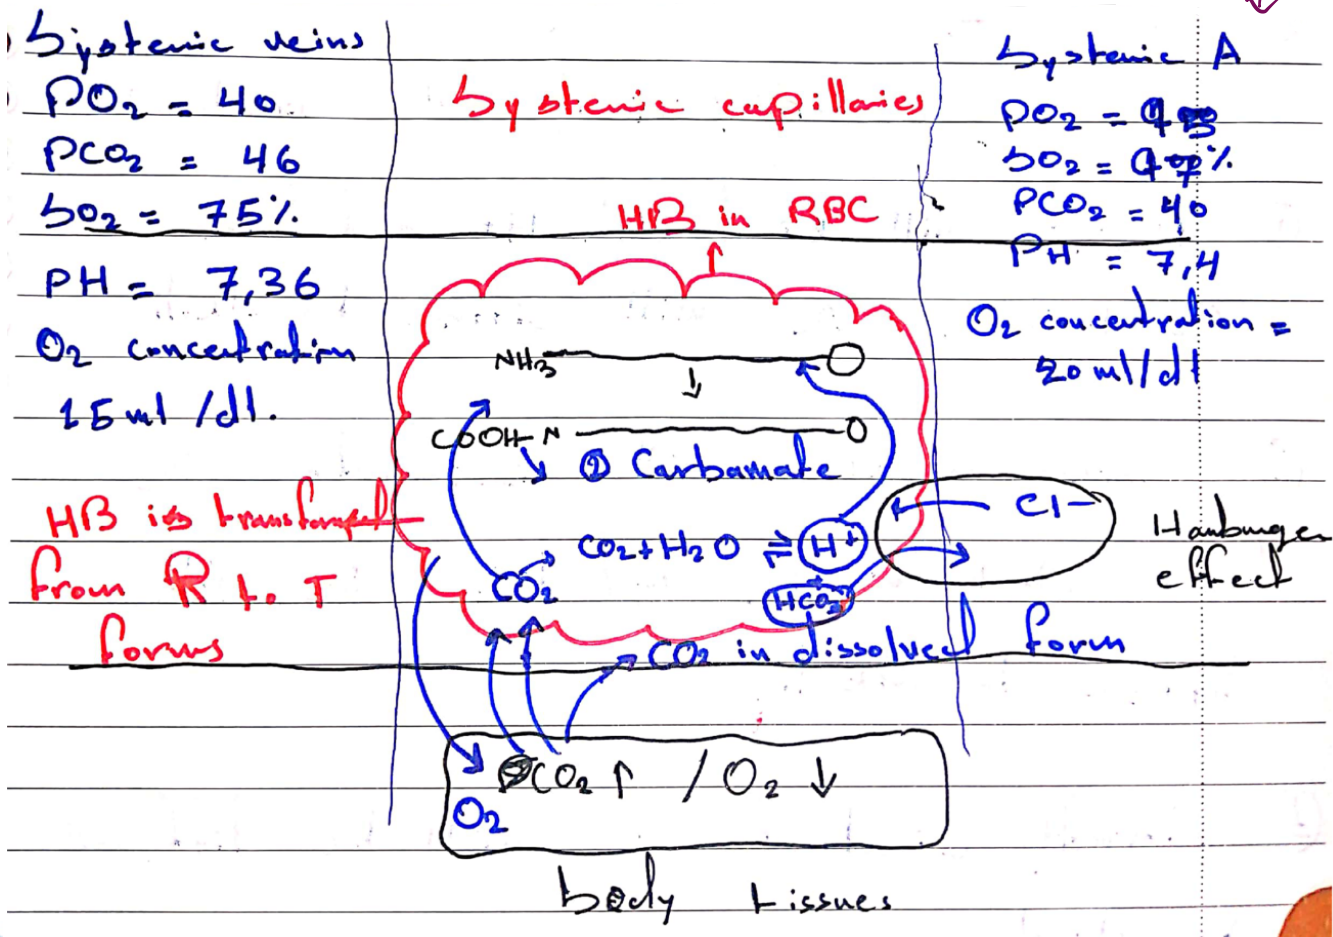 Systemic veins
PO2 = 40
PCO2 = 46
SO2 = 75%
PH = 7,36
O2 concentration
15 ml /dl.
HB is transformed
from R to T
forms
Systemic capillaries
HB in RBC
NH3
COOH-N
② Carbamate
CO2+H2O ⇌ H+
CO2
HCO3-
CO2 in dissolved form
CO2 ↑ / O2 ↓
O2
body tissues
Systemic A
PO2 =
SO2 = %
PCO2 = 40
PH = 7,4
O2 concentration =
20 ml/dl
Cl-
Hamburger
effect